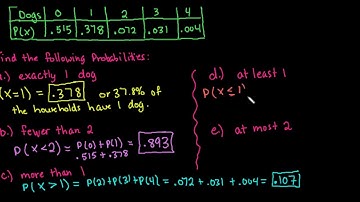 Dogs 0 1 2 3 4
P(x) .515 .378 .072 .031 .004
Find the following Probabilities:
a.) exactly 1 dog
(x=1) = .378 or 37.8% of
the households have 1 dog.
b.) fewer than 2
P(x<2) = P(0)+P(1) = .893
.515+.378
c.) more than 1
P(x>1) = P(2)+P(3)+P(4) = .072+.031+.004 = .107
d.) at least 1
P(x≤1)
e.) at most 2